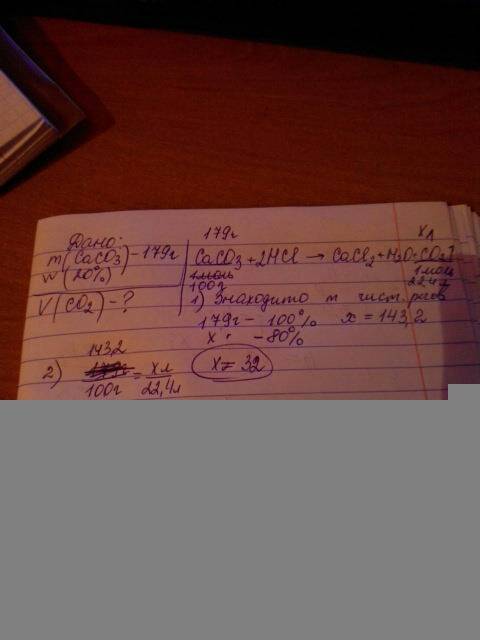 Дано:
m(CaCO3) - 179г
w(20%)
V(CO2) - ?
179г хл
CaCO3 + 2HCl → CaCl2 + H2O + CO2↑
1моль 1моль
100г 22,4л
1) Знаходимо m чист. реч
179г - 100% x = 143,2
x - 80%
2) 143,2
179г = хл
100г 22,4л
x = 32